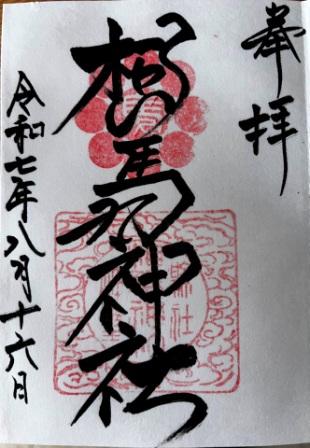 奉拝
相馬神社
令和七年八月十六日